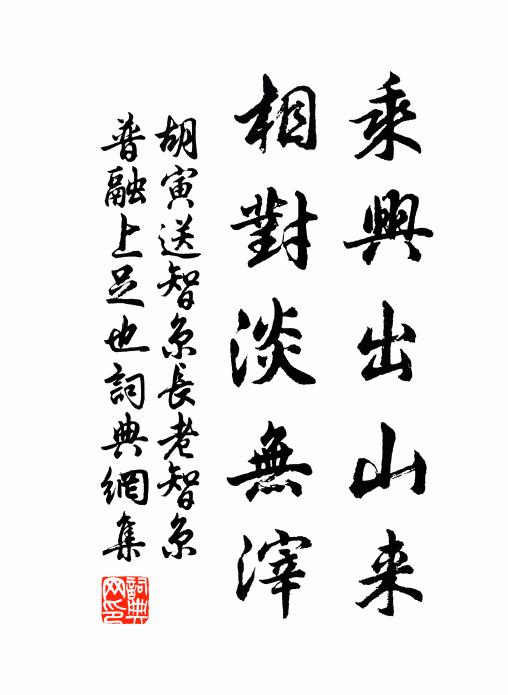 乘興出山来
相對淡無滓
胡寅送智京長老智京
普融上足也詞典網集